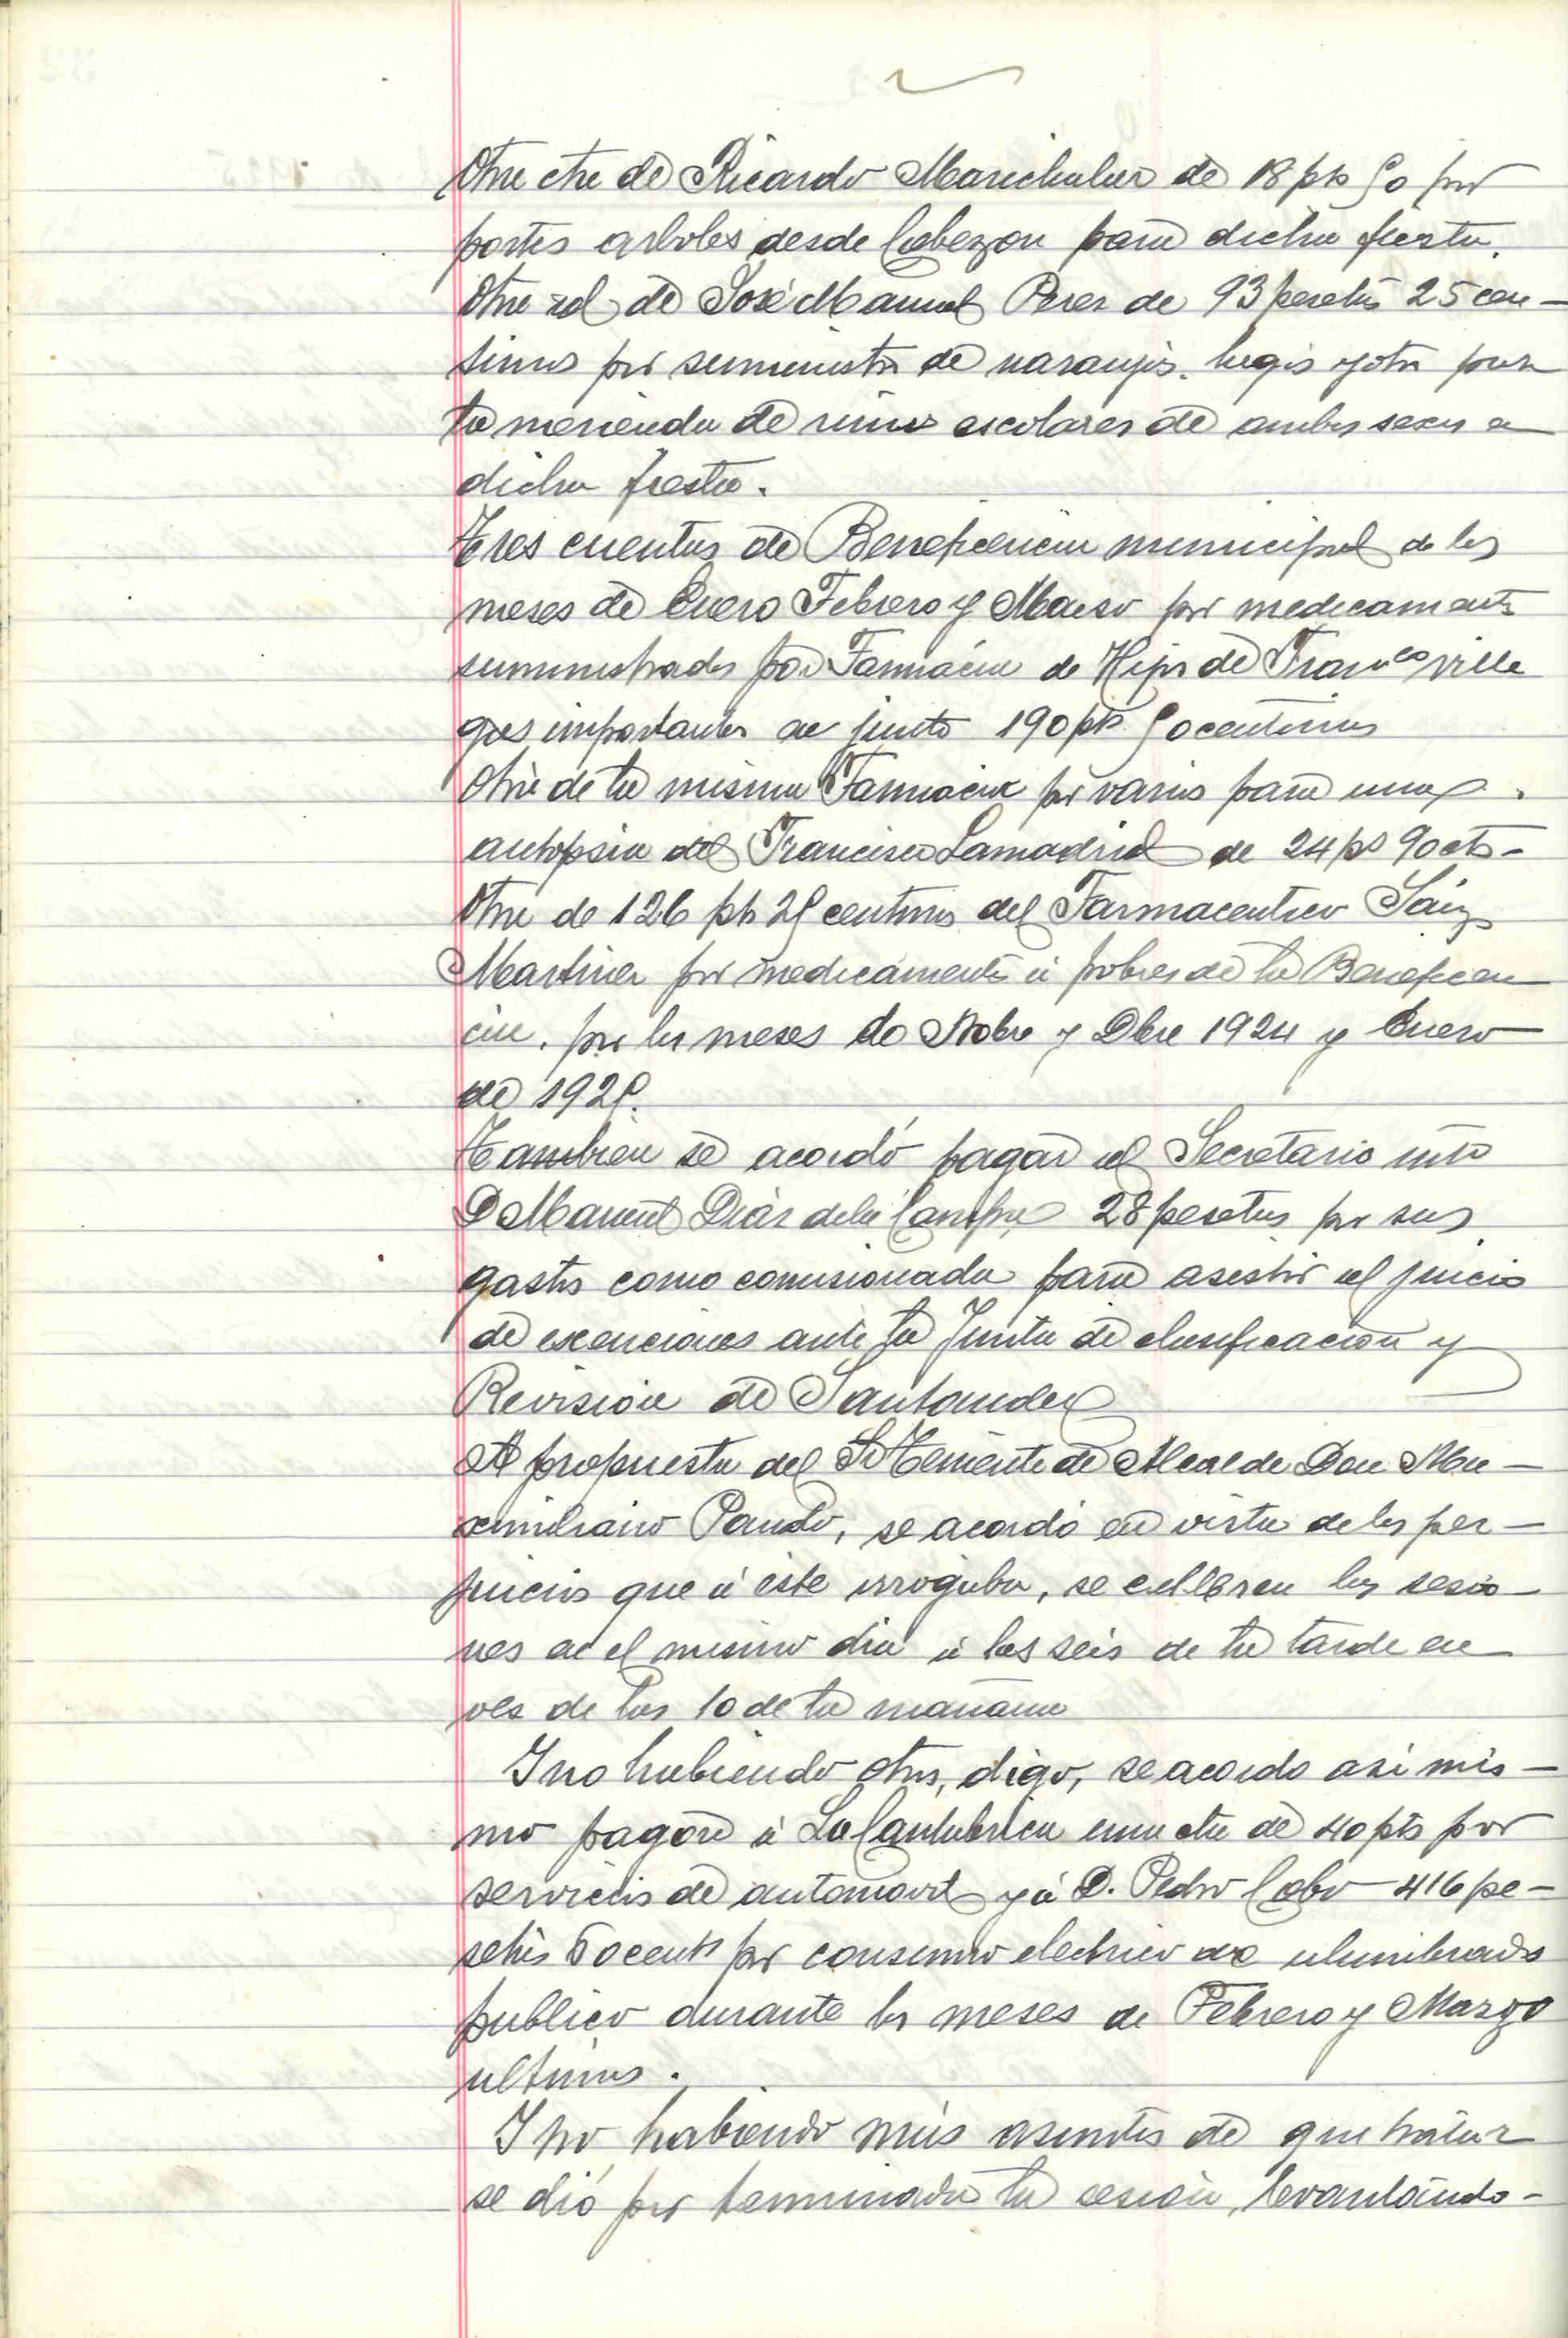 Otra cta de Ricardo Marichalar de 18 pts 50 por
portes arboles desde Cabezon para dicha fiesta.
Otra id de José Manuel Perez de 93 pesetas 25 cen-
timos por suministro de naranjas, higos y otros para
la merienda de niños escolares de ambos sexos en
dicha fiesta.
Tres cuentas de Beneficencia municipal de los
meses de Enero Febrero y Marzo por medicamentos
suministrados por Farmacia de Hijos de Franco Ville
gas importantes en junto 190 pts 50 centimos
Otra de la misma Farmacia por varios para una
autopsia del Francisco Lamadrid de 24 ps 90 cts-
Otra de 126 pts 25 centimos del Farmaceutico Sáiz
Martinez por medicamentos á pobres de la Beneficen
cia, por los meses de Nobre y Dbre 1924 y Enero
de 1925.
Tambien se acordó pagar al Secretario
D Manuel Diaz de la Campa 28 pesetas por sus
gastos como comisionado para asistir al juicio
de exenciones ante la Junta de clasificacion y
Revision de Santander
A propuesta del Sr Teniente de Alcalde Don Ma-
ximiliano Pando, se acordó en vista de los per-
juicios que á este irrogaba, se celebren las sesio-
nes en el mismo dia á las seis de la tarde en
vez de las 10 de la mañana
Y no habiendo otros, digo, se acordo asi mis-
mo pagar á La Cantabrica una cta de 40 pts por
servicios de automovil y á D. Pedro Cobo 416 pe-
setas 50 cents por consumo electrico de alumbrado
publico durante los meses de Febrero y Marzo
ultimos.
Y no habiendo más asuntos de que tratar
se dió por terminada la sesión, levantándo-